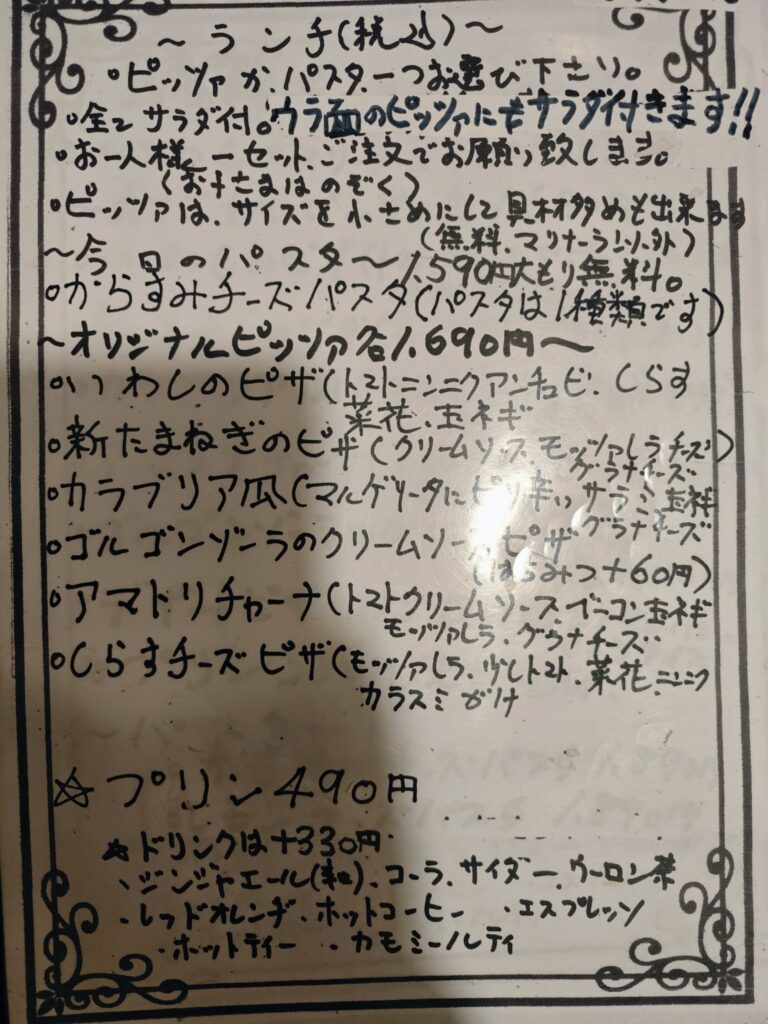 ～ランチ(税込)～
・ピッツァか、パスタ一つお選び下さい。
・全てサラダ付。ウラ面のピッツァにもサラダ付きます!!
・お一人様、一セット、ご注文でお願い致します。
(お子さまはのぞく)
・ピッツァは、サイズを小さめにして具材多めも出来ます
(無料、マリナーラ以外)
～今日のパスタ～1,590円大もり無料。
・からすみチーズパスタ(パスタは1種類です)
～オリジナルピッツァ各1,690円～
・いわしのピザ(トマトニンニクアンチョビ、しらす
菜花、玉ネギ
・新たまねぎのピザ(クリームソースモッツァレラチーズ)
グラナチーズ
・カラブリア瓜(マルゲリータにピリ辛いサラミ玉ネギ
グラナチーズ
・ゴルゴンゾーラのクリームソースピザ
(はちみつ+60円)
・アマトリチャーナ(トマトクリームソース、ベーコン玉ネギ
モッツァレラ、グラナチーズ
・しらすチーズピザ(モッツァレラ、少しトマト、菜花、ニンニク
カラスミがけ
☆プリン490円
☆ドリンクは+330円
・ジンジャエール()、コーラ、サイダー、ウーロン茶
・レッドオレンヂ・ホットコーヒー ・エスプレッソ
・ホットティー ・カモミールティ